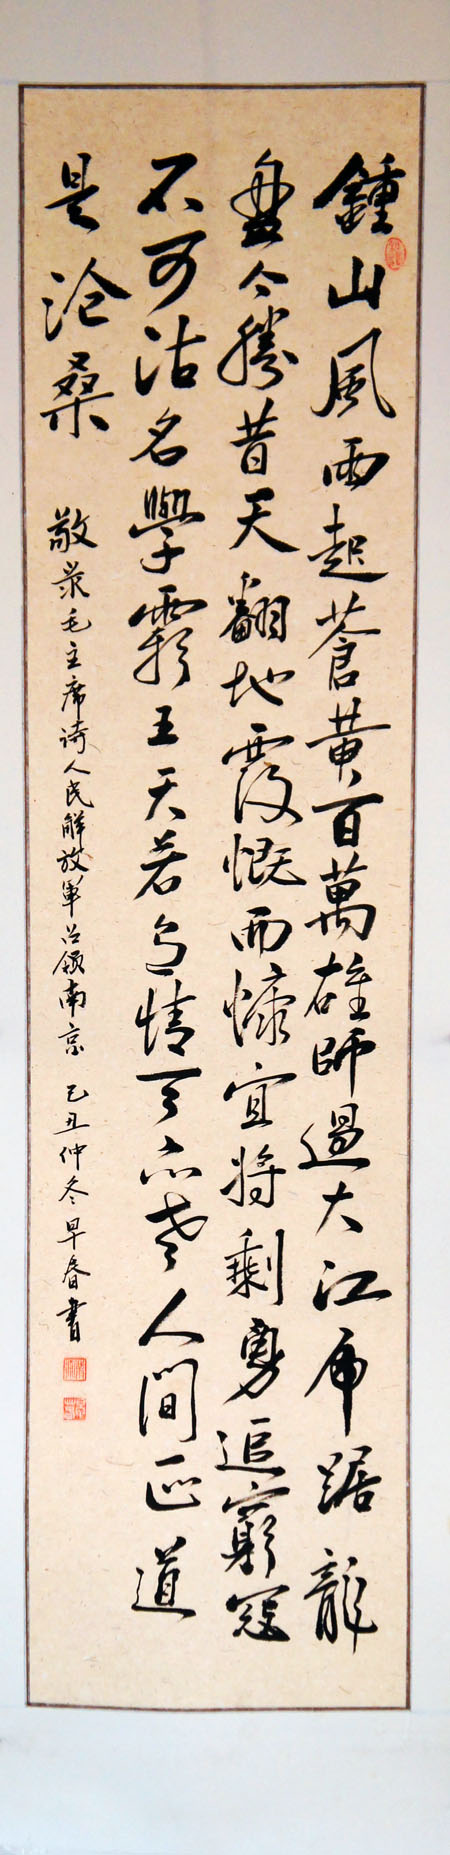 鍾山風雨起蒼黄百萬雄師過大江虎踞龍
盤今勝昔天翻地覆慨而慷宜将剩勇追窮寇
不可沽名學霸王天若有情天亦老人間正道
是沧桑
敬录毛主席诗人民解放軍占领南京 己丑仲冬早春書